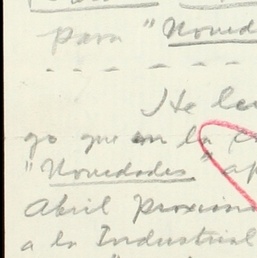 para "Noved
He le
go que en la
"Novedades" ap
Abril proxim
a la Industrial